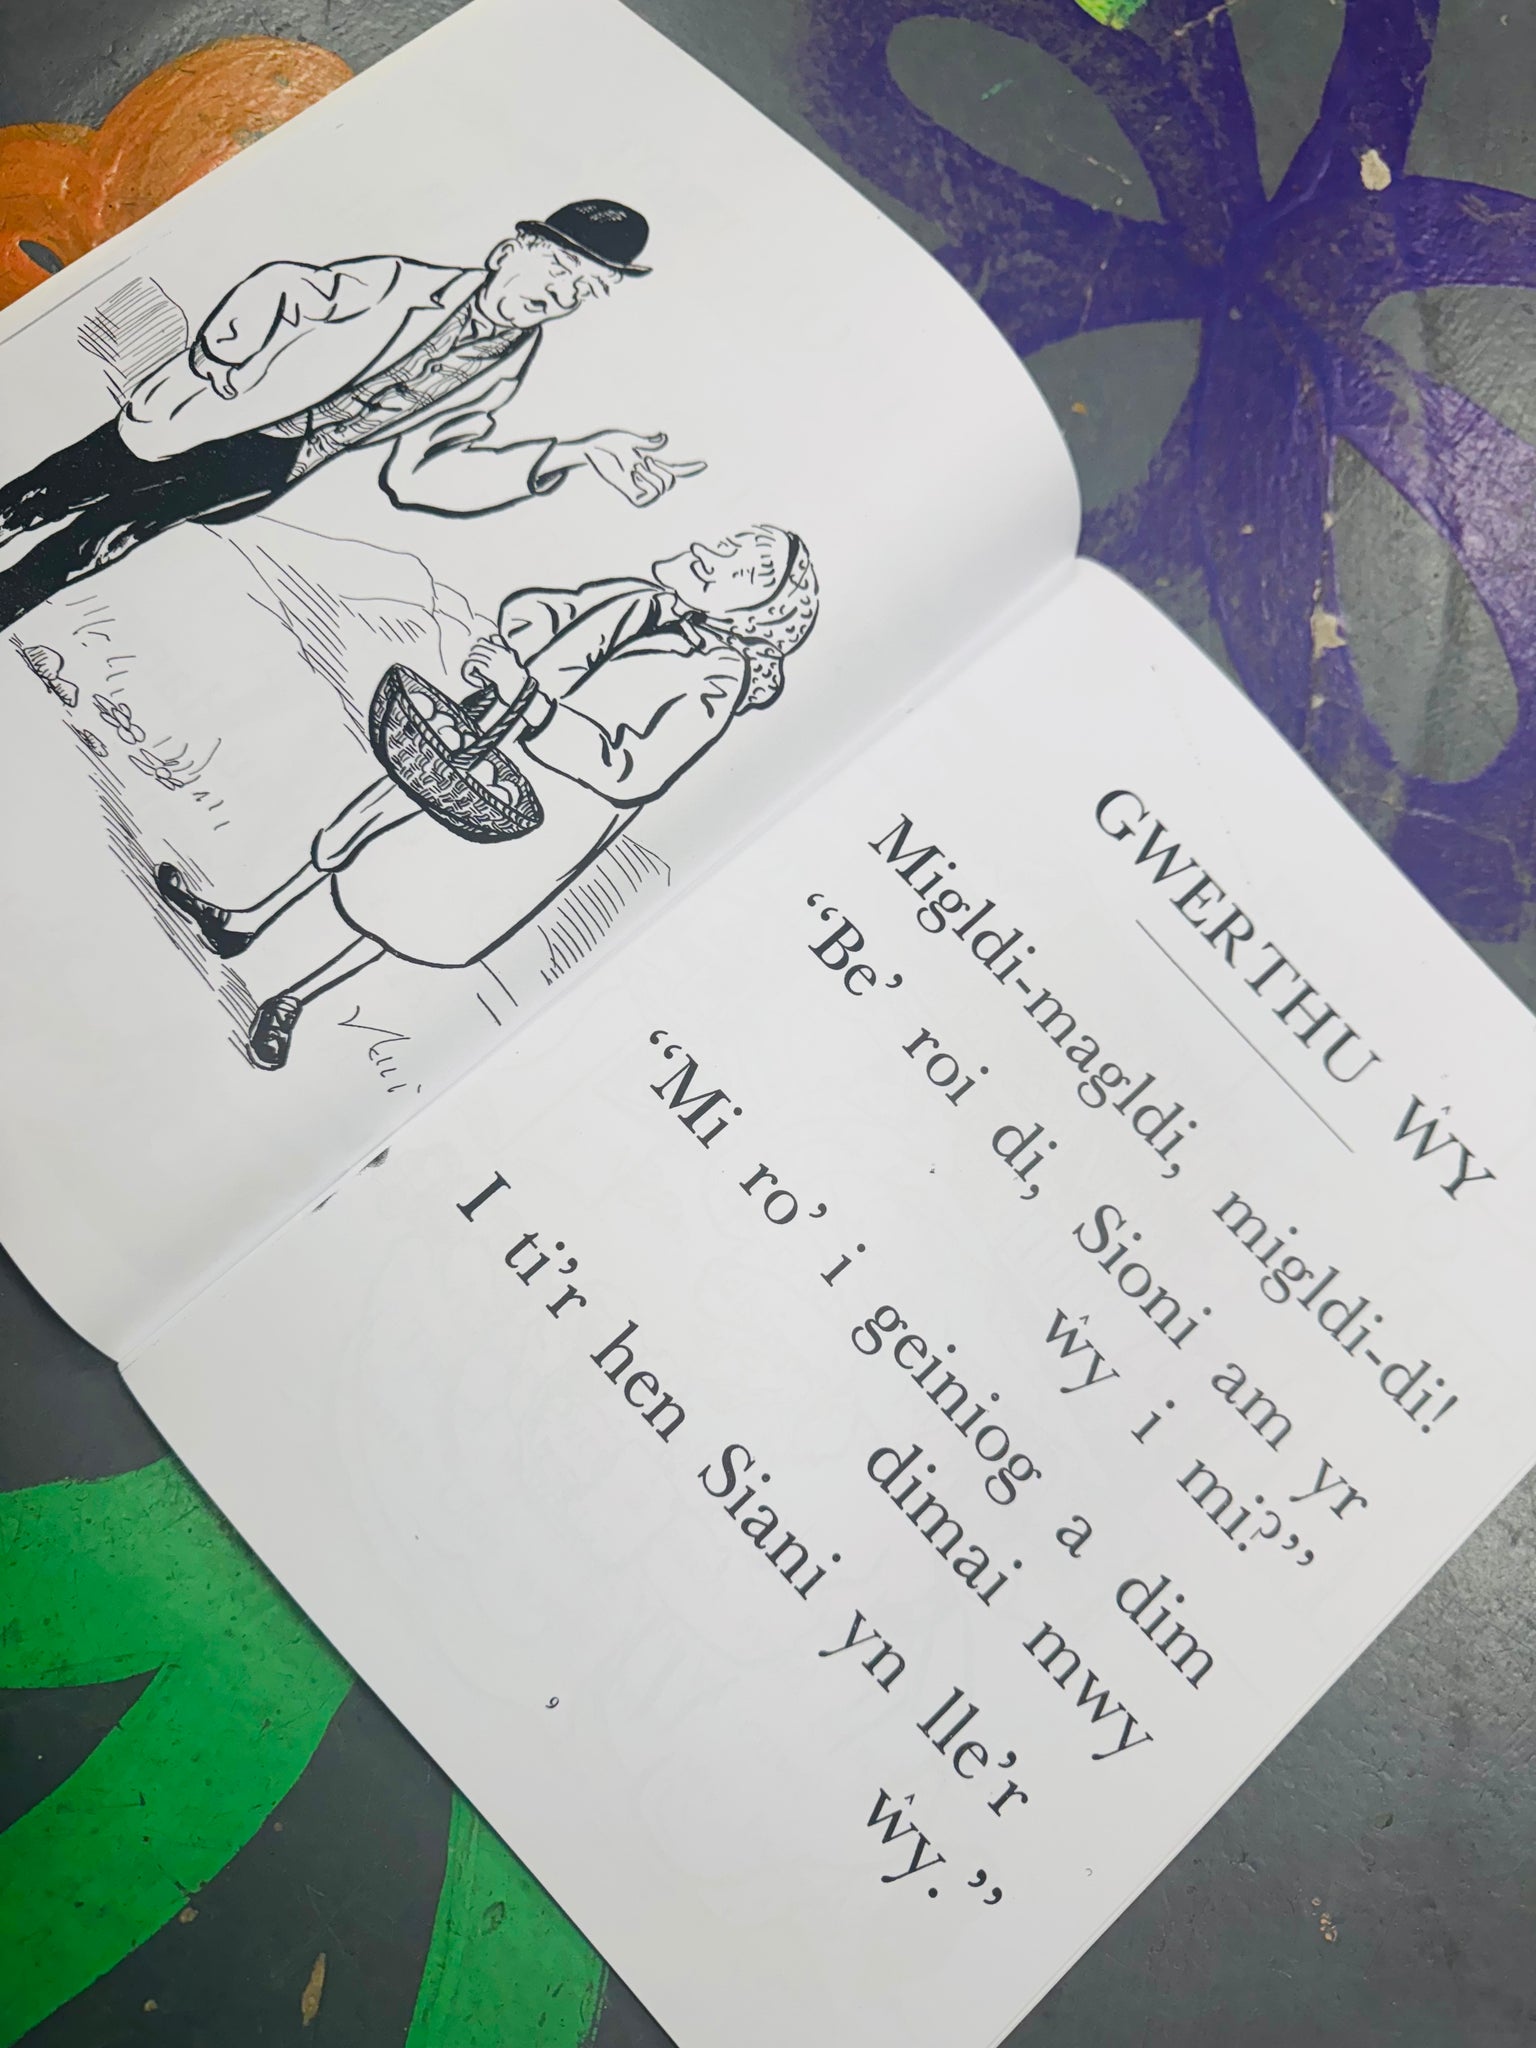 GWERTHU ŴY
Migldi-magldi, migldi-di!
“Be’ roi di, Sioni am yr
ŵy i mi?”
“Mi ro’ i geiniog a dim
dimai mwy
I ti’r hen Siani yn lle’r
ŵy.”
9